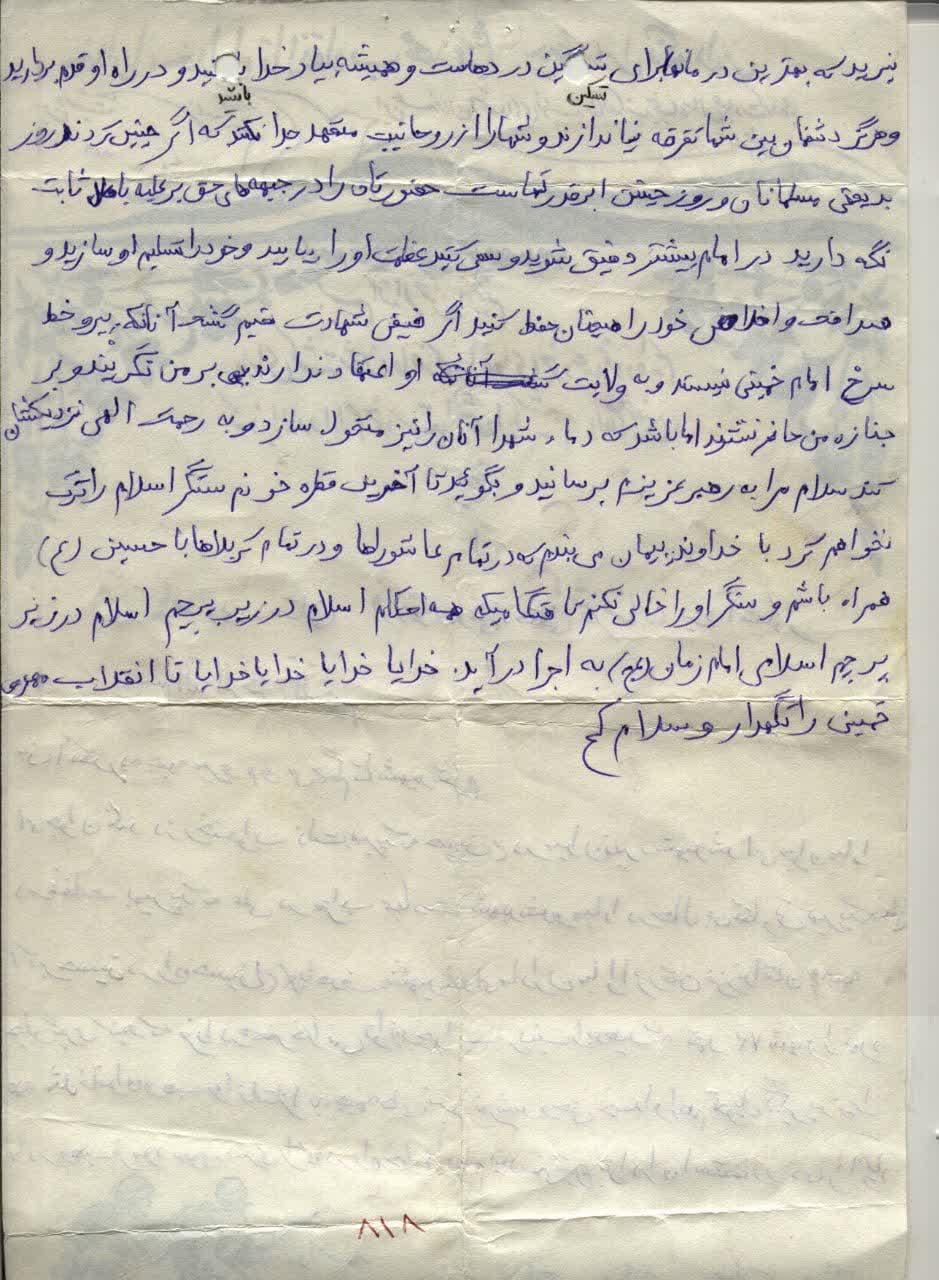 ببرید که بهترین درمانها برای تسکین دردهاست و همیشه بیاد خدا باشید و در راه او قدم بردارید
تسکین
باشید
و هرگز دشمنان بین شما تفرقه نیاندازند و شما را از روحانیت متعهد جدا نکنند که اگر چنین کردند روز
بدبختی مسلمانان و روز جشن ابرقدرتهاست حضورتان را در جبهه های حق بر علیه باطل ثابت
نگه دارید در امام بیشتر دقیق شوید و سعی کنید عظمت او را بیابید و خود را تسلیم او سازید و
صداقت و اخلاص خود را همچنان حفظ کنید اگر فیض شهادت نصیبم گشت آنانکه پیرو خط
سرخ امام خمینی نیستند و به ولایت او اعتقاد ندارند بر من نگریند و بر
جنازه من حاضر نشوند اما باشد که دماء شهدا آنان را نیز متحول سازد و به رحمت الهی نزدیکشان
کند سلام مرا به رهبر عزیزم برسانید و بگوئید تا آخرین قطره خونم سنگر اسلام را ترک
نخواهم کرد با خداوند پیمان می بندم که در تمام عاشوراها و در تمام کربلاها با حسین (ع)
همراه باشم و سنگر او را خالی نکنم تا هنگامیکه همه احکام اسلام در زیر پرچم اسلام در زیر
پرچم اسلامی امام زمان (عج) به اجرا در آید. خدایا خدایا خدایا خدایا تا انقلاب مهدی
خمینی را نگهدار والسلام
۸۱۸